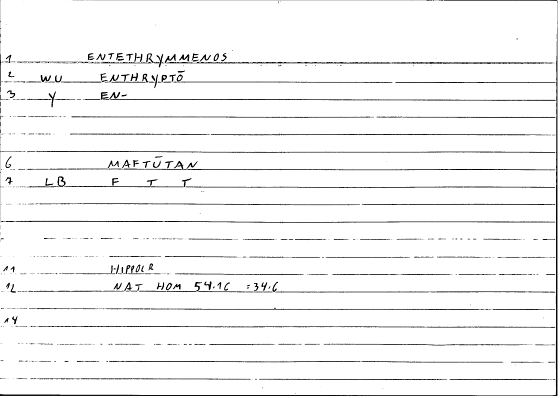 1 ENTETHRYMMENOS
2 WU ENTHRYPTŌ
3 Y EN-
6 MAFTŪTAN
7 LB F T T
11 HIPPOCR
12 NAT HOM 54.16 =34.6
14